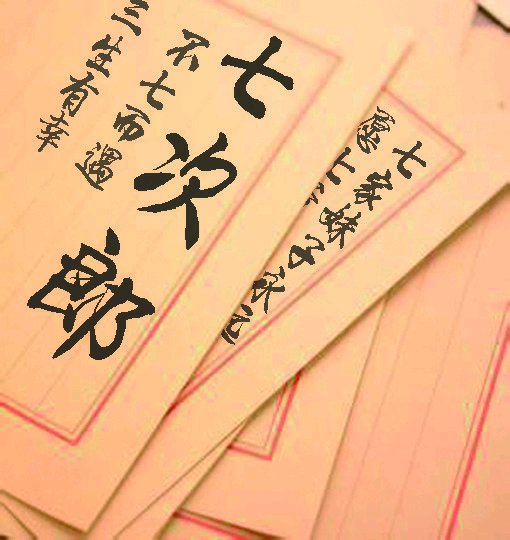 七次郎
不七而遇
三生有幸
七家妹子